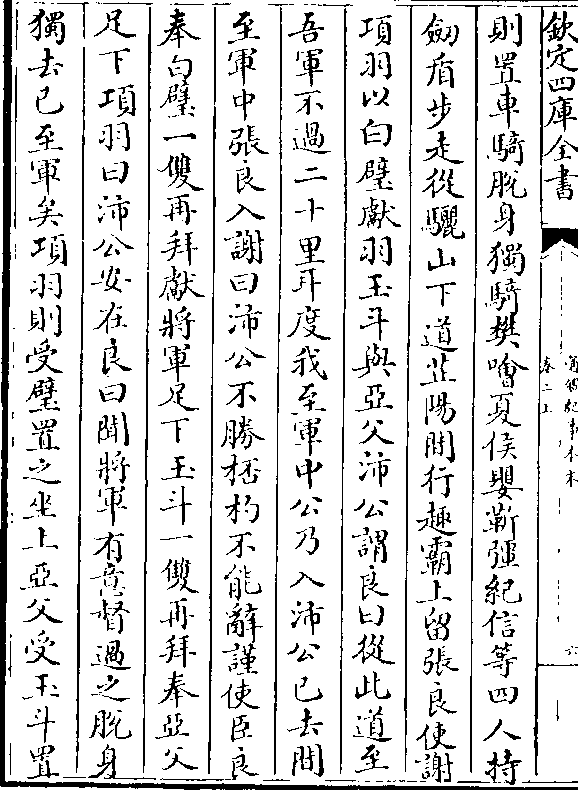 欽定四庫全書
通鑑紀事本末
卷二上
六
則置車騎脫身獨騎樊噲夏侯嬰靳彊紀信等四人持
劒盾步走從驪山下道芷陽間行趣霸上留張良使謝
項羽以白璧獻羽玉斗與亞父沛公謂良曰從此道至
吾軍不過二十里耳度我至軍中公乃入沛公已去間
至軍中張良入謝曰沛公不勝桮杓不能辭謹使臣良
奉白璧一雙再拜獻將軍足下玉斗一雙再拜奉亞父
足下項羽曰沛公安在良曰聞將軍有意督過之脫身
獨去已至軍矣項羽則受璧置之坐上亞父受玉斗置